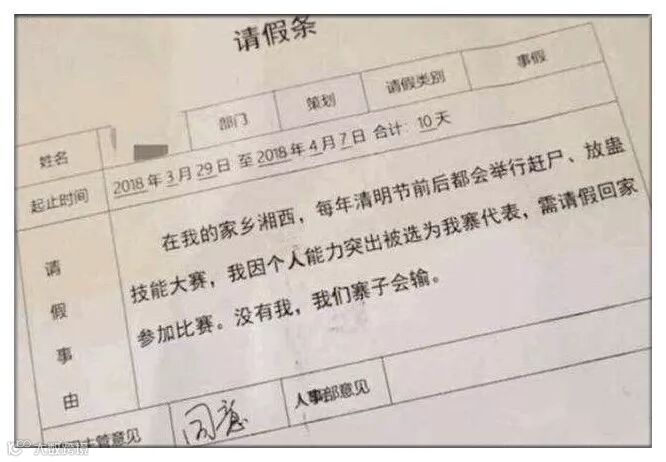 请假条
姓名 部门 策划 请假类别 事假
起止时间 2018 年 3 月 29 日 至 2018 年 4 月 7 日 合计: 10 天
请假事由
在我的家乡湘西，每年清明节前后都会举行赶尸、放蛊
技能大赛，我因个人能力突出被选为我寨代表，需请假回家
参加比赛。没有我，我们寨子会输。
主管意见 同意 人事部意见
大数跨境